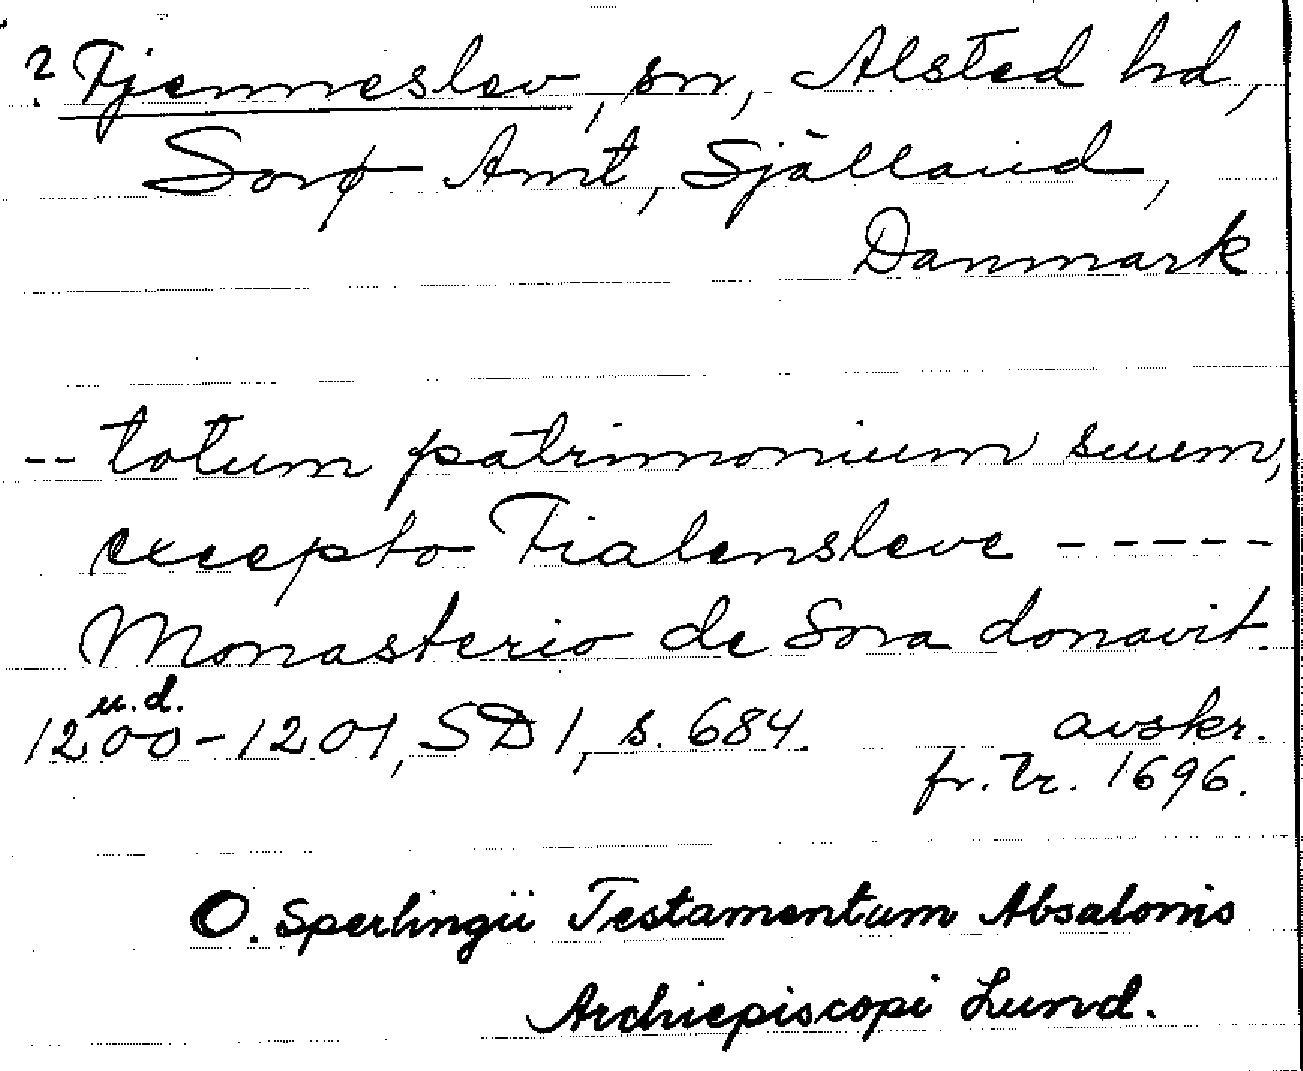 ? Fjenneslev, sn, Alsted hd,
Sorø Amt, Själland,
Danmark
-- totum patrimonium suum,
excepto Fialensleve -----
Monasterio de Sora donavit.
u.d.
1200-1201, SD 1, s. 684. avskr.
fr. tr. 1696.
O. Sperlingii Testamentum Absalonis
Archiepiscopi Lund.